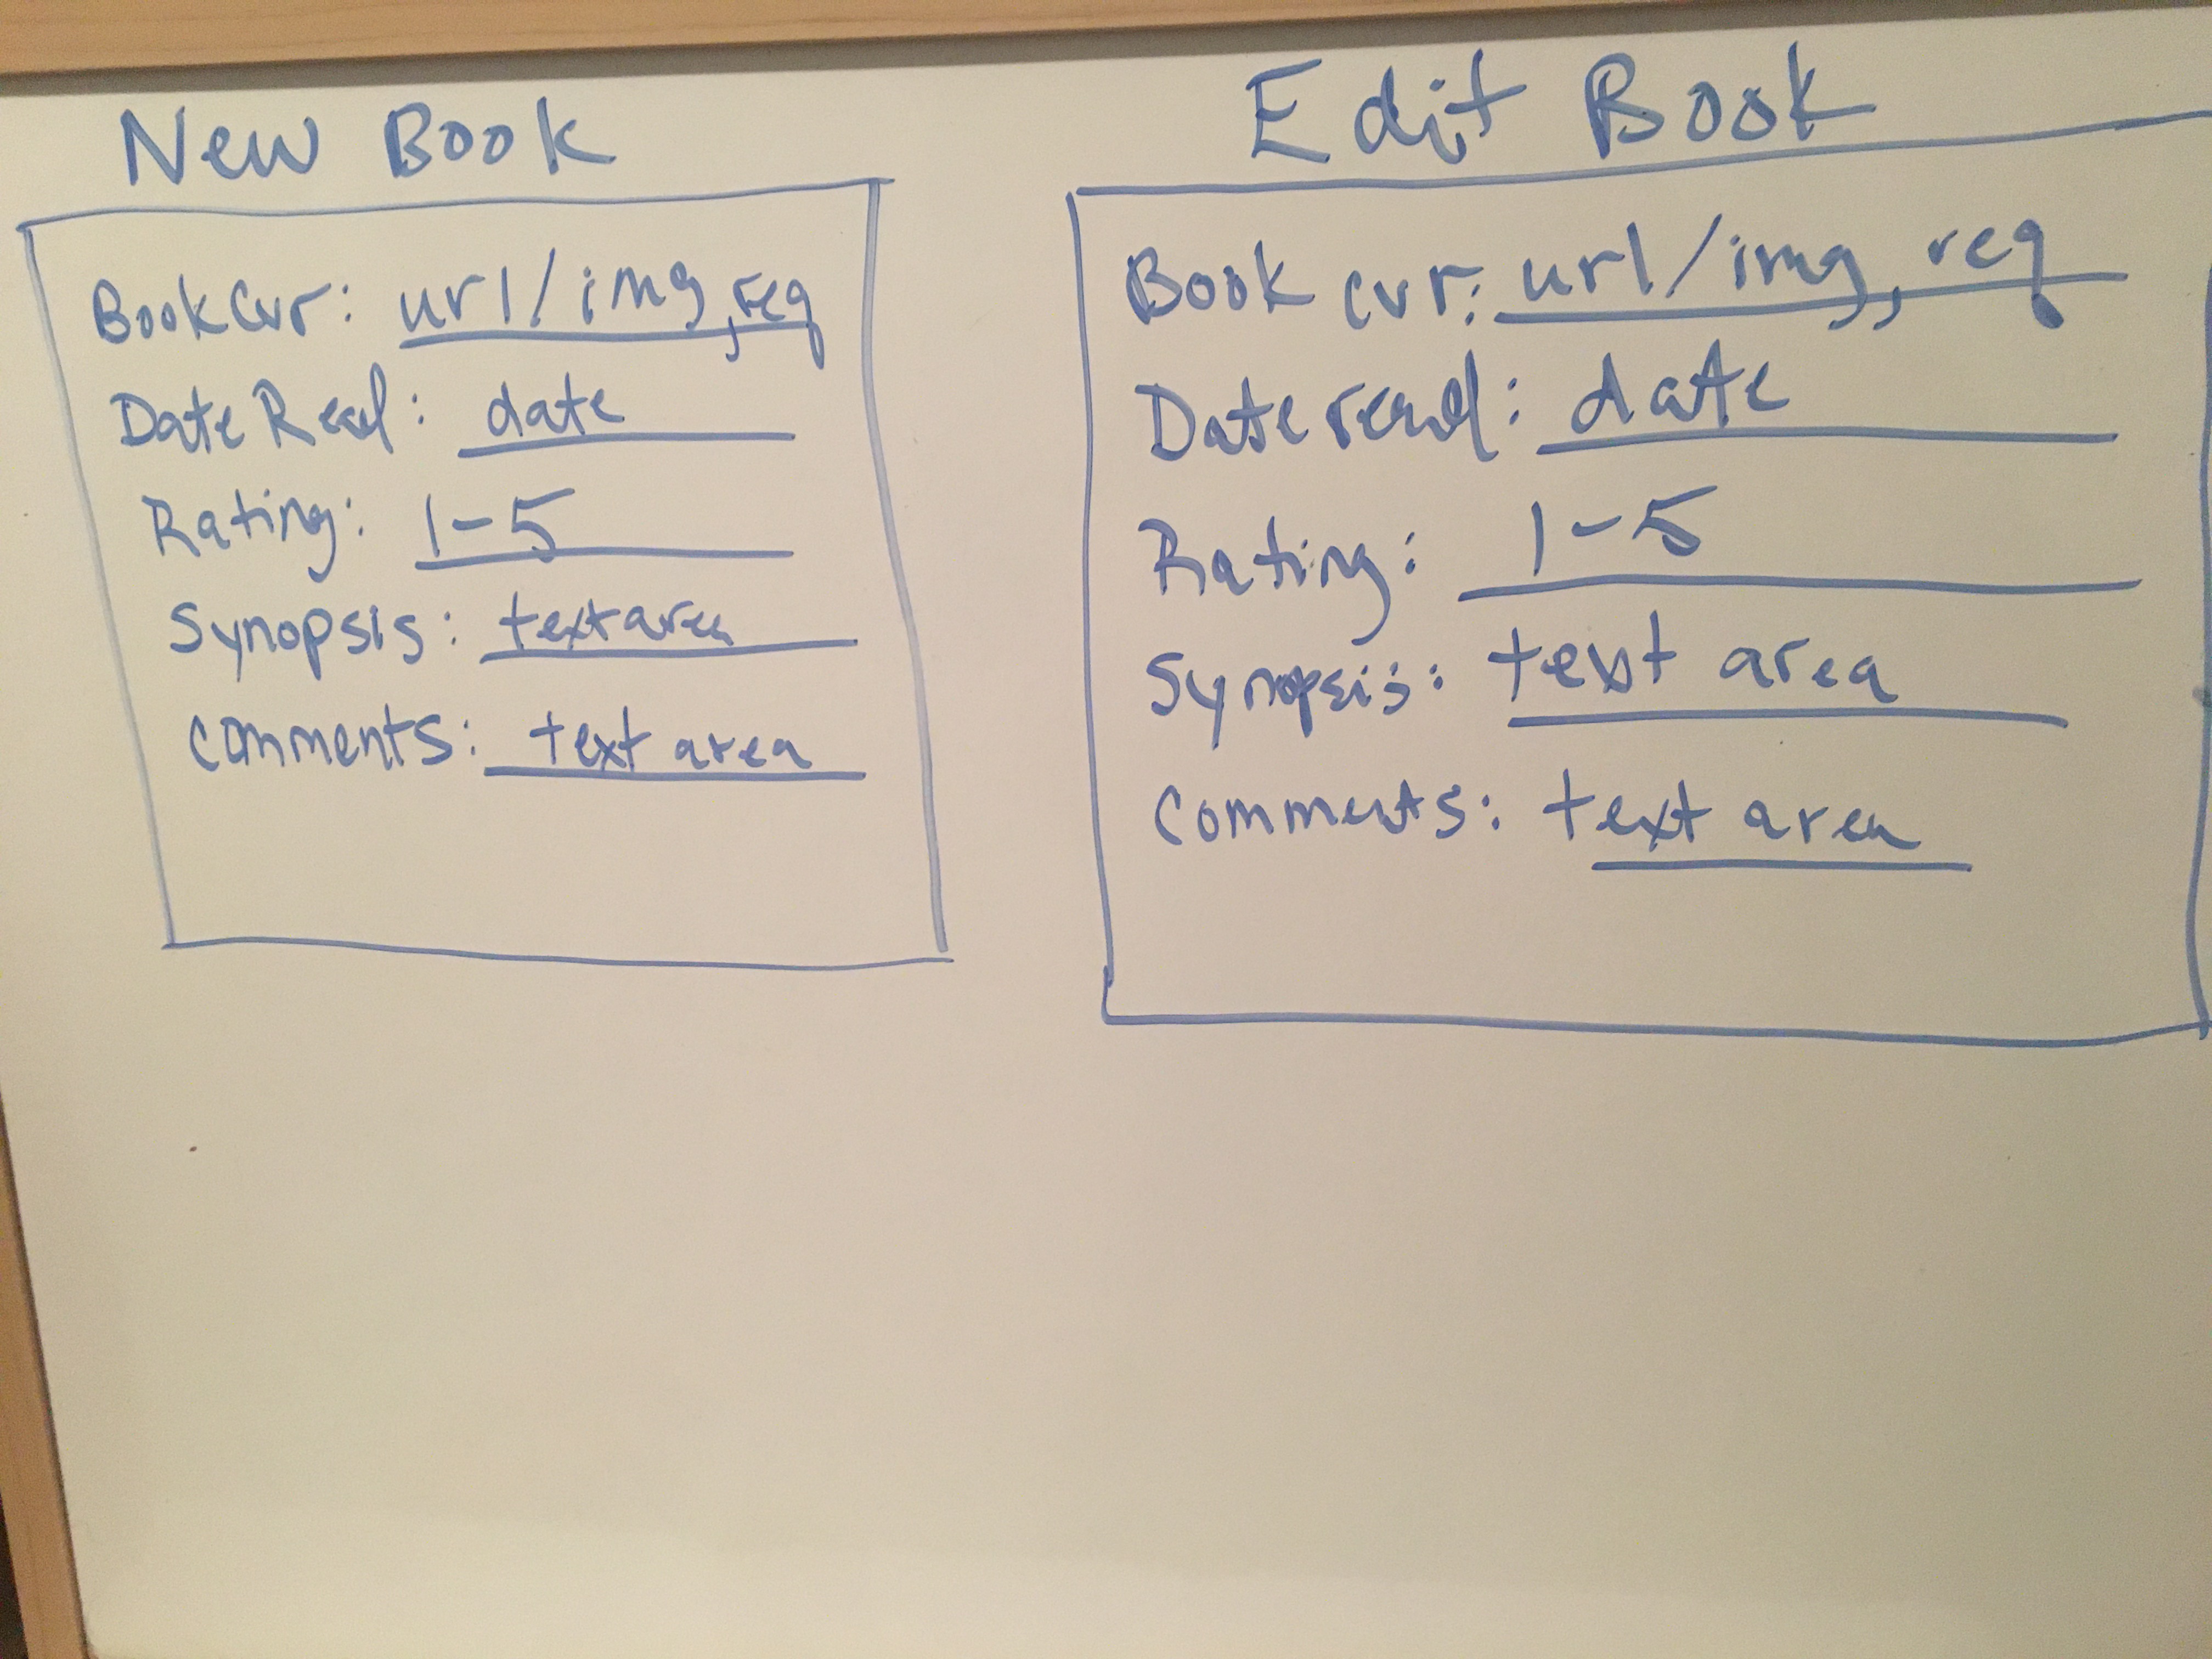 New Book
Book Cvr: url/img, req
Date Read: date
Rating: 1-5
Synopsis: textarea
Comments: text area
Edit Book
Book cvr: url/img, req
Date read: date
Rating: 1-5
Synopsis: text area
Comments: text area